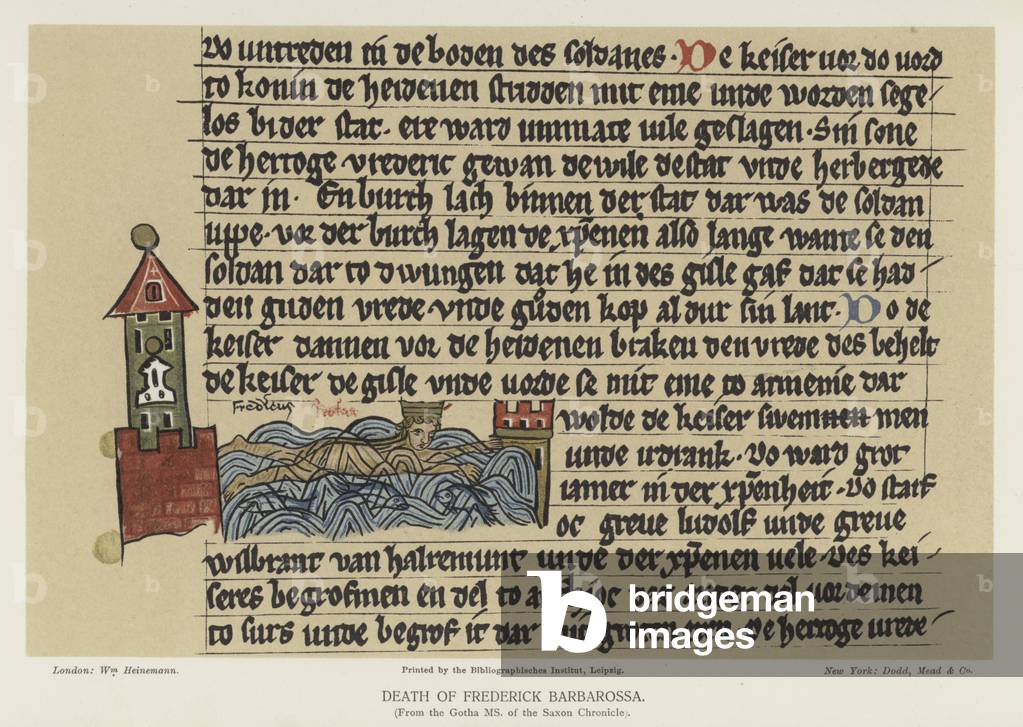 Vo untreden in de boden des soldanes. De keiser vor do vord
to konin de heidenen studden mit eme unde worden sege
los bi der stat. ere ward ummate vile geslagen. Sin sone
de hertoge vrederic gewan de wile de stat vnde herbergede
dar in. En burch lach binnen der stat dar was de soldan
uppe. vor der burch lagen de xp̅enen also lange wante se den
soldan dar to dwungen dat he in des gisle gaf dat se had
den guden vrede vnde guden kop al dur sin lant. Do de
keiser dannen vor de heidenen braken den vrede des behelt
de keiser de gisle vnde vorde se mit eme to armenie dar
Fredericus
wolde de keiser swemmen men
unde udrank. Do ward grot
iamer in der xp̅enheit. Do starf
oc greue ludolf unde greue
wilbrant van halremunt unde der xp̅enen uele. Des kei
seres begrofmen en del to
to surs unde begrof it dar De hertoge vrede
bridgeman
images
London: Wm Heinemann.
Printed by the Bibliographisches Institut, Leipzig.
New York: Dodd, Mead & Co.
DEATH OF FREDERICK BARBAROSSA.
(From the Gotha MS. of the Saxon Chronicle).